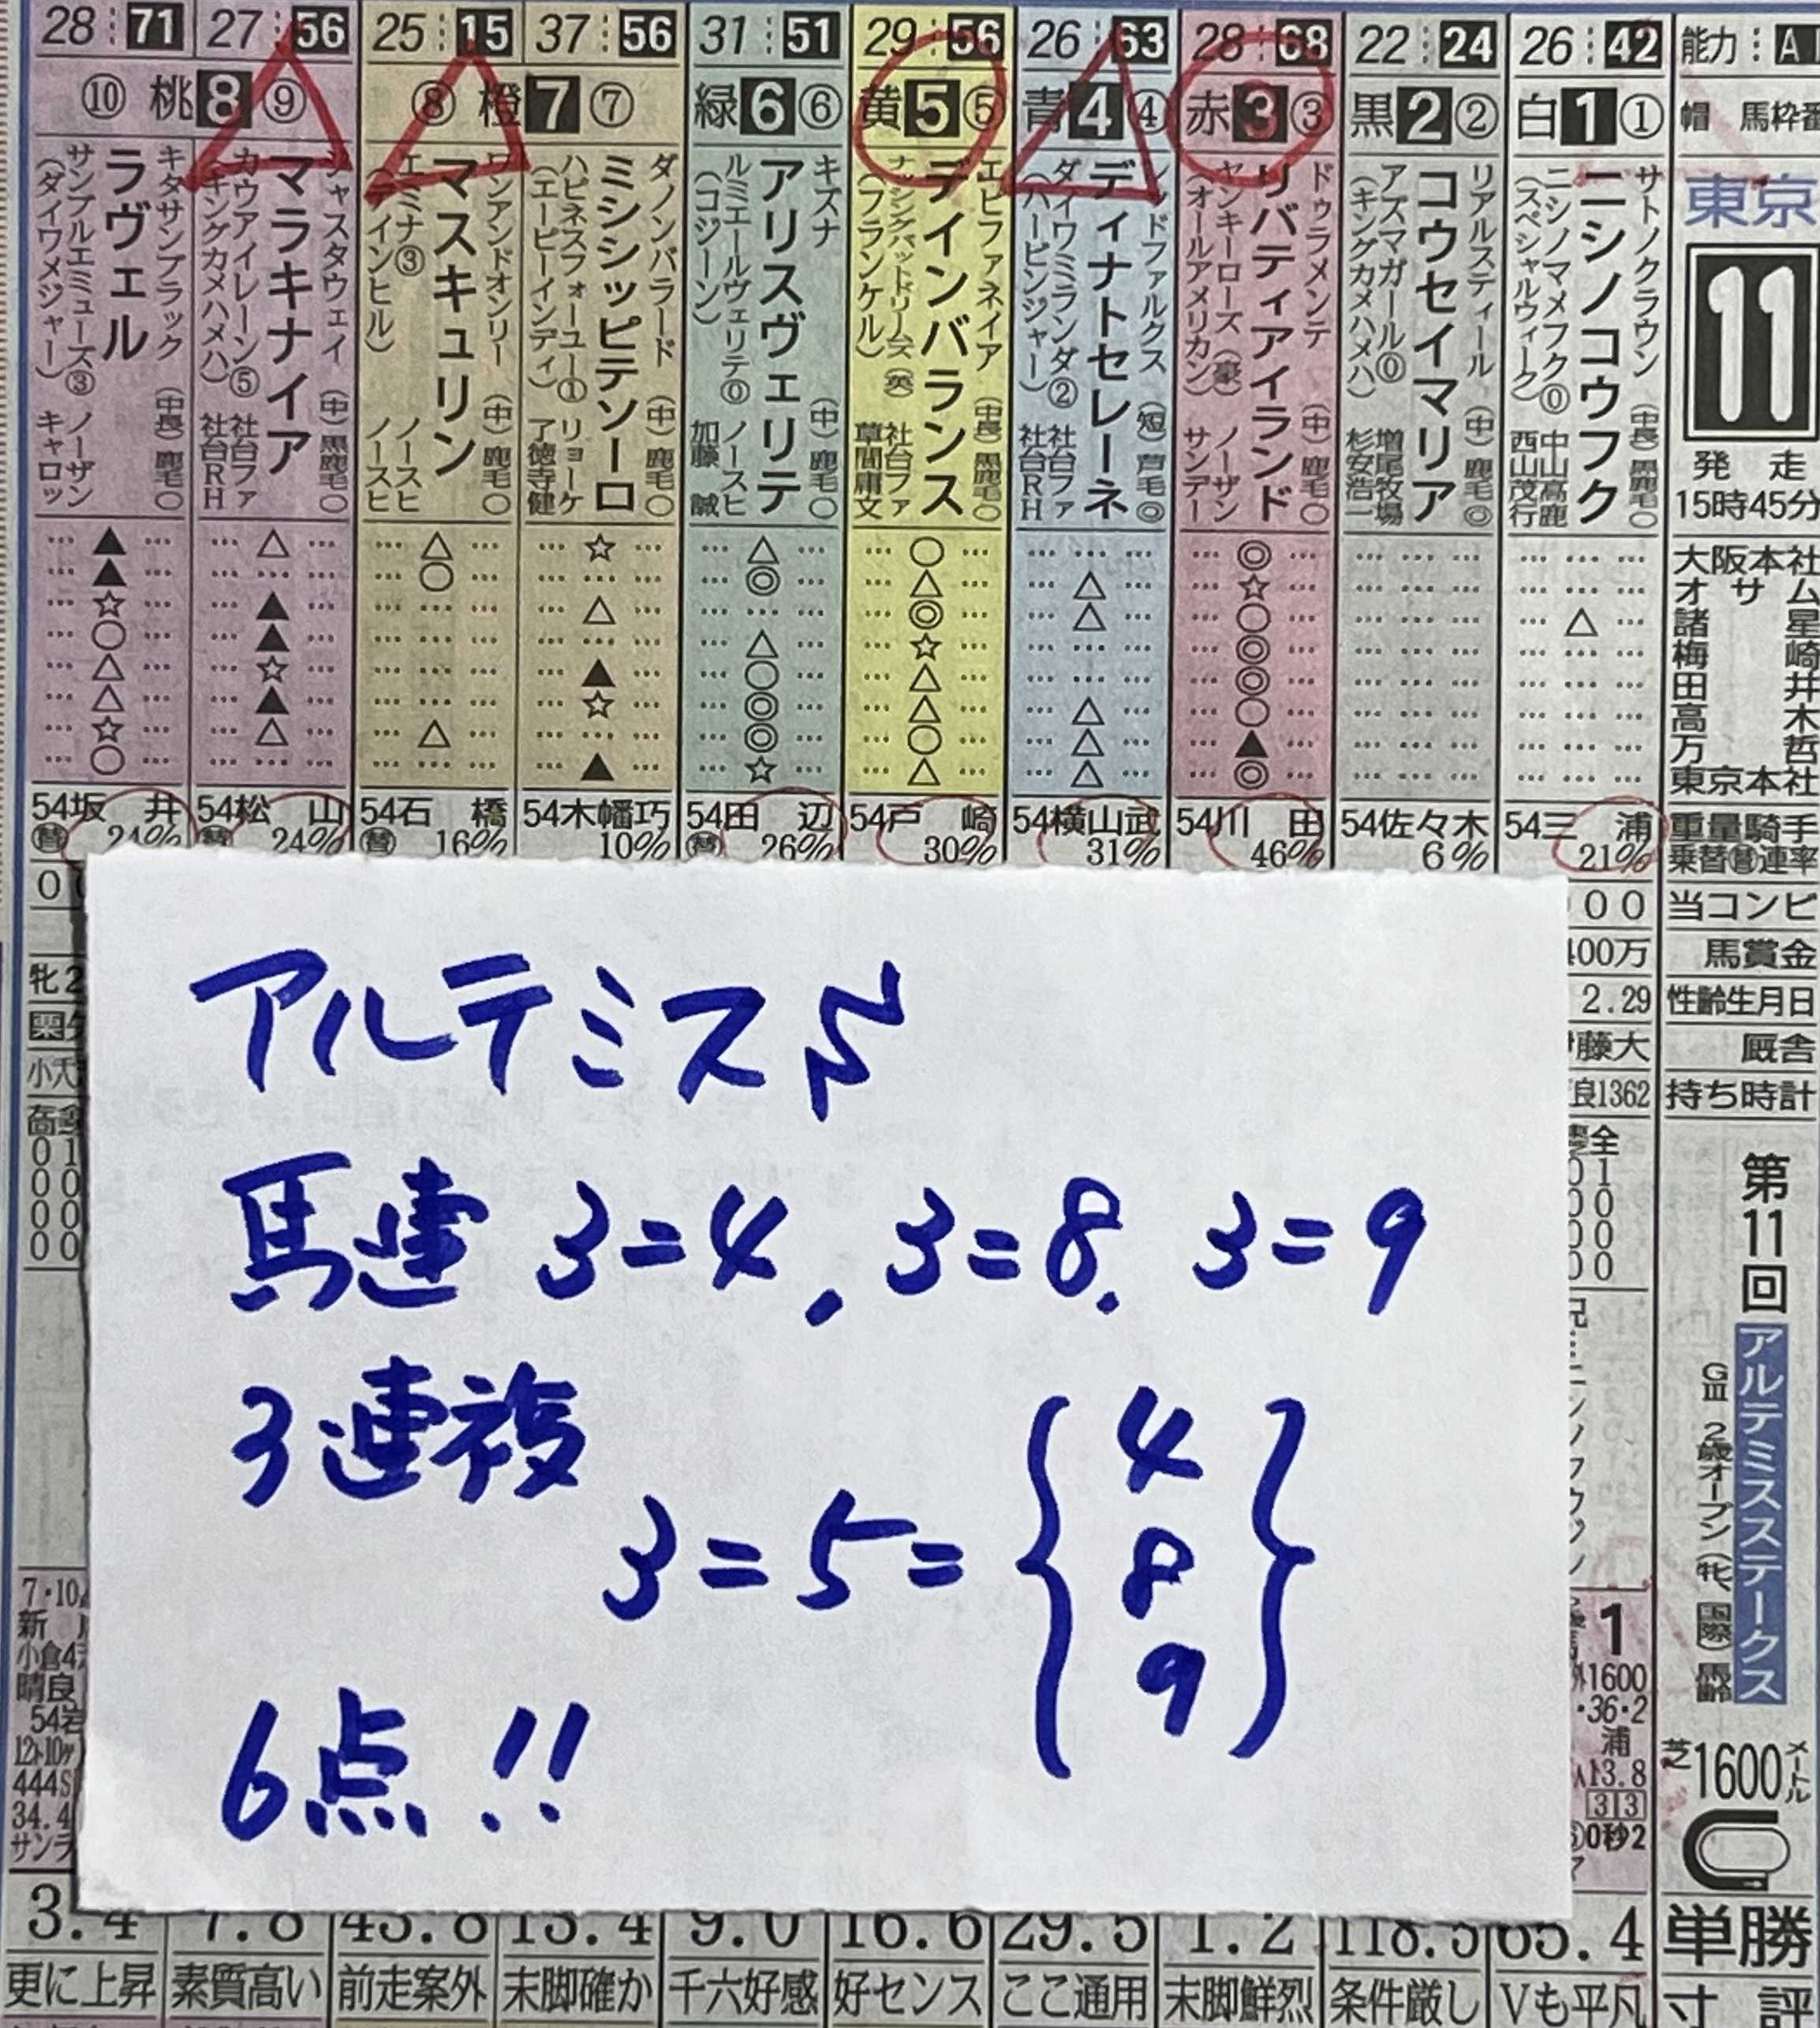 能力 A
帽 馬枠番
東京
11
発走
15時45分
大阪本社
オサム
諸星
梅崎
田井
高木
万哲
東京本社
重量騎手
乗替替連率
当コンビ
馬賞金
性齢生月日
厩舎
持ち時計
第11回
アルテミスステークス
GⅢ 2歳オープン(牝、国際)馬齢
芝1600メートル
単勝
寸評
26 42
白 1 ①
サトノクラウン(中長)黒鹿毛○
ニシノコウフク
ニシノマメフク⓪ 中山高鹿
(スペシャルウィーク) 西山茂行
△
54三浦
21%
00
400万
2.29
伊藤大
良1362
全
01
00
00
00
1
1600
・36・2
浦
13.8
33
0秒2
65.4
Vも平凡
22 24
黒 2 ②
リアルスティール(中)鹿毛◎
コウセイマリア
アズマガール⓪ 増尾牧場
(キングカメハメハ) 杉安浩一
54佐々木
6%
118.5
条件厳し
28 68
赤 3 ③
ドゥラメンテ(中)鹿毛○
リバティアイランド
ヤンキーローズ(豪) ノーザン
(オールアメリカン) サンデー
◎
☆
○
◎
◎
○
▲
◎
54川田
46%
1.2
末脚鮮烈
26 63
青 4 ④
ンドファルクス(短)芦毛◎
ディナトセレーネ
ダイワミランダ② 社台ファ
(ハービンジャー) 社台RH
△
△
△
△
△
54横山武
31%
29.5
ここ通用
29 56
黄 5 ⑤
エピファネイア(中長)黒鹿毛○
デインバランス
ナッシングバットドリームズ(英) 社台ファ
(フランケル) 草間庸文
○
△
◎
☆
△
△
○
△
54戸崎
30%
16.6
好センス
31 51
緑 6 ⑥
キズナ(中)鹿毛○
アリスヴェリテ
ルミエールヴェリテ⓪ ノースヒ
(コジーン) 加藤誠
△
◎
△
○
◎
◎
☆
54田辺
替 26%
9.0
千六好感
37 56
7 ⑦
ダノンバラード(中)鹿毛○
ミシシッピテソーロ
ハピネスフォーユー① リョーケ
(エーピーインディ) 了徳寺健
☆
△
▲
☆
▲
54木幡巧
10%
13.4
末脚確か
25 15
⑧ 橙
ワンアンドオンリー(中)鹿毛○
マスキュリン
エミナ③ ノースヒ
(デインヒル) ノースヒ
△
○
△
54石橋
替 16%
43.8
前走案外
27 56
8 ⑨
ジャスタウェイ(中)黒鹿毛○
マラキナイア
カウアイレーン⑤ 社台ファ
(キングカメハメハ) 社台RH
△
▲
▲
☆
▲
△
54松山
替 24%
7.8
素質高い
28 71
⑩ 桃
キタサンブラック(中長)鹿毛○
ラヴェル
サンブルエミューズ③ ノーザン
(ダイワメジャー) キャロッ
▲
▲
☆
○
△
△
☆
○
54坂井
替 24%
牝2
栗
小倉4
晴良
54岩
444S
34.4
サンラ
3.4
更に上昇
アルテミスS
馬連 3=4, 3=8. 3=9
3連複
3=5={4 8 9}
6点!!